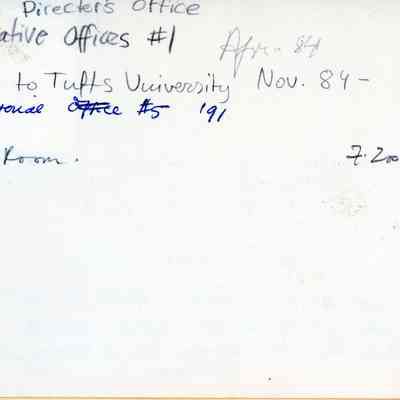 Director's Office
ative Offices #1
Apr. 84
to Tufts University Nov. 84-
ional Office #5 '91
Room. 7.200